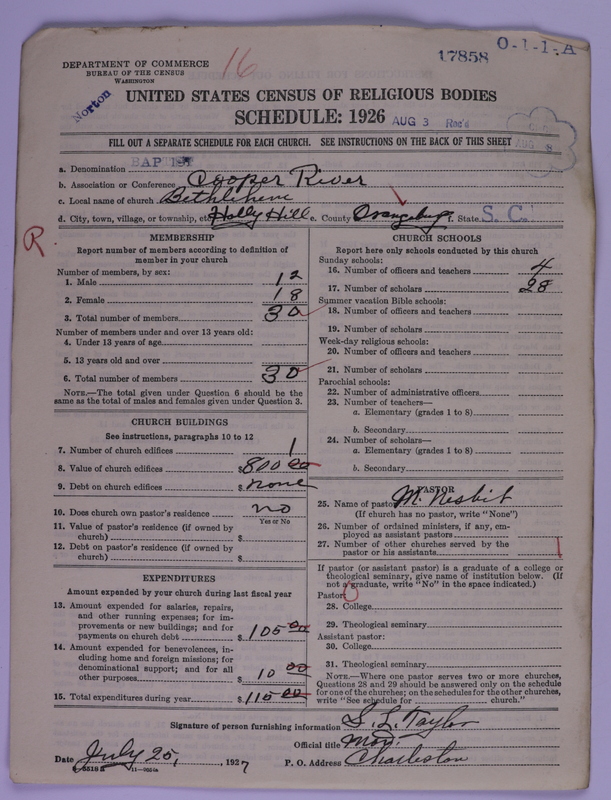 16
17858
O-1-1-A
DEPARTMENT OF COMMERCE
BUREAU OF THE CENSUS
WASHINGTON
Norton
UNITED STATES CENSUS OF RELIGIOUS BODIES
SCHEDULE: 1926
AUG 3 Rec'd
AUG 8
FILL OUT A SEPARATE SCHEDULE FOR EACH CHURCH. SEE INSTRUCTIONS ON THE BACK OF THIS SHEET
a. Denomination BAPTIST
b. Association or Conference Cooper River
c. Local name of church Bethlehem
d. City, town, village, or township, etc. Holly Hill e. County Orangeburg f. State S. C.
R
MEMBERSHIP
Report number of members according to definition of
member in your church
Number of members, by sex:
1. Male 12
2. Female 18
3. Total number of members 30
Number of members under and over 13 years old:
4. Under 13 years of age
5. 13 years old and over
6. Total number of members 30
NOTE.—The total given under Question 6 should be
same as the total of males and females given under Question 3.
CHURCH BUILDINGS
See instructions, paragraphs 10 to 12
7. Number of church edifices 1
8. Value of church edifices $800 00
9. Debt on church edifices $ none
10. Does church own pastor's residence no
Yes or No
11. Value of pastor's residence (if owned by
church) $
12. Debt on pastor's residence (if owned by
church) $
EXPENDITURES
Amount expended by your church during last fiscal year
13. Amount expended for salaries, repairs,
and other running expenses; for im-
provements or new buildings; and for
payments on church debt $105 00
14. Amount expended for benevolences, in-
cluding home and foreign missions; for
denominational support; and for all
other purposes $10 00
15. Total expenditures during year $115 00
CHURCH SCHOOLS
Report here only schools conducted by this church
Sunday schools:
16. Number of officers and teachers 4
17. Number of scholars 28
Summer vacation Bible schools:
18. Number of officers and teachers
19. Number of scholars
Week-day religious schools:
20. Number of officers and teachers
21. Number of scholars
Parochial schools:
22. Number of administrative officers
23. Number of teachers—
a. Elementary (grades 1 to 8)
b. Secondary
24. Number of scholars—
a. Elementary (grades 1 to 8)
b. Secondary
PASTOR
25. Name of pastor M. Nesbit
(If church has no pastor, write "None")
26. Number of ordained ministers, if any, em-
ployed as assistant pastors
27. Number of other churches served by the
pastor or his assistants 1
If pastor (or assistant pastor) is a graduate of a college or
theological seminary, give name of institution below. (If
not a graduate, write "No" in the space indicated.)
Pastor: 0
28. College
29. Theological seminary
Assistant pastor:
30. College
31. Theological seminary
NOTE.—Where one pastor serves two or more churches,
Questions 28 and 29 should be answered only on the schedule
for one of the churches; on the schedules for the other churches,
write "See schedule for church."
Signature of person furnishing information S. L. Taylor
Official title Mod.
Date July 25, 1927 P. O. Address Charleston